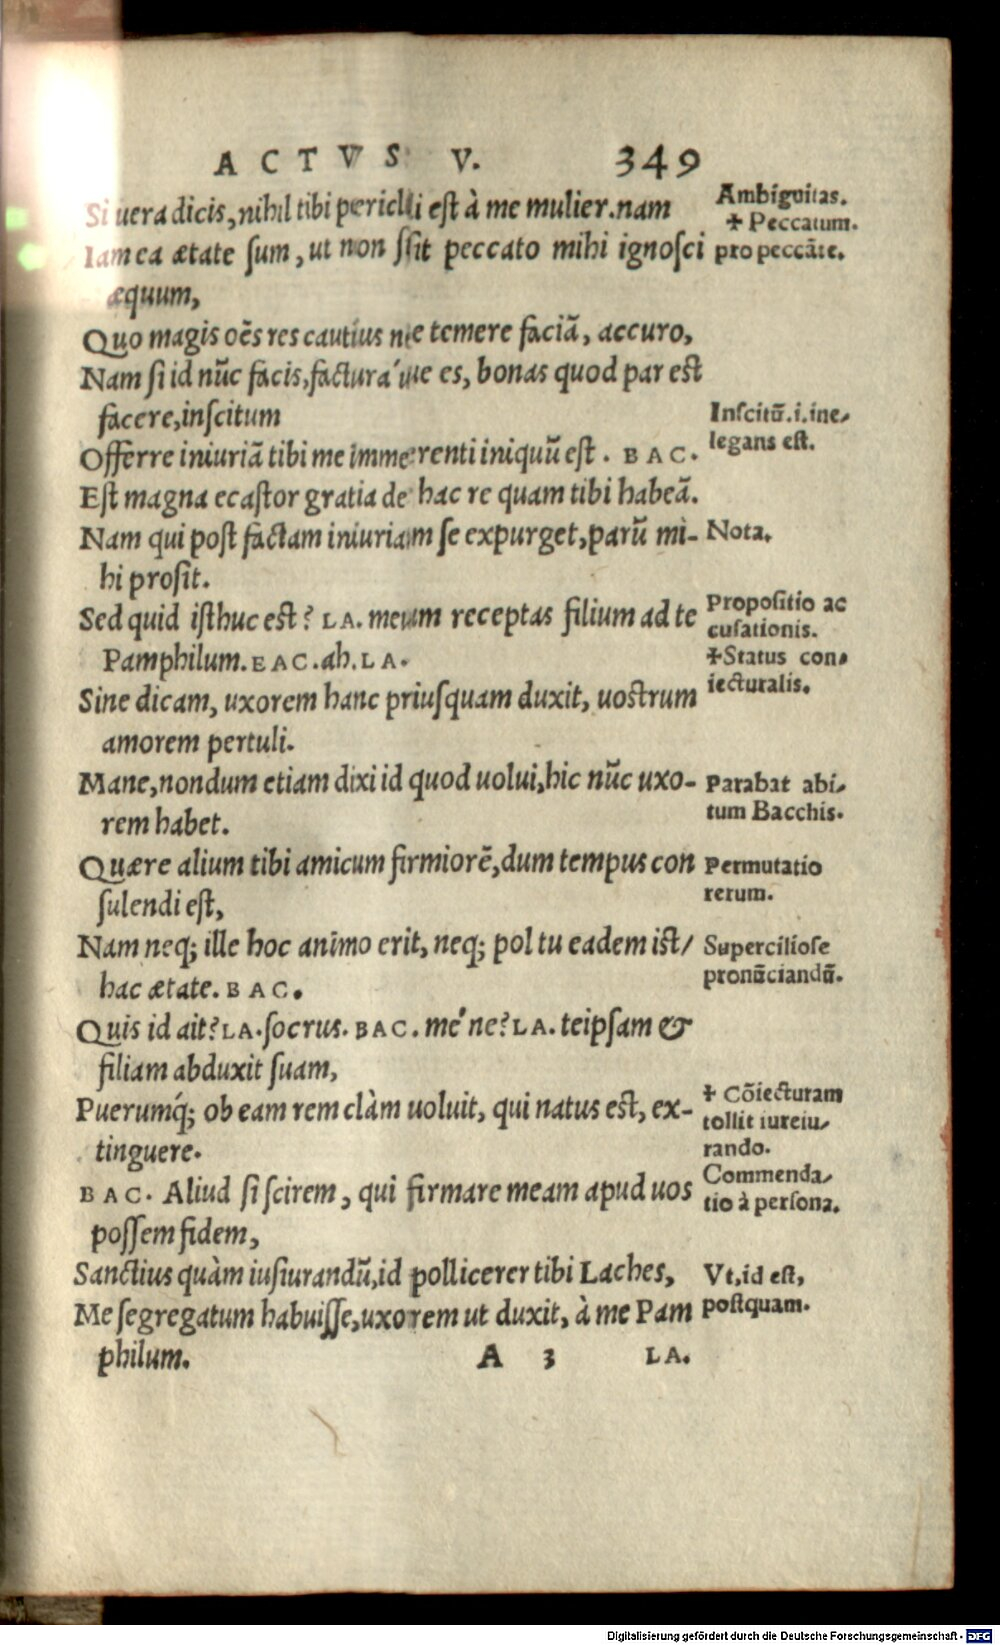 ACTVS V. 349
Si uera dicis, nihil tibi pericli est à me mulier. nam
Iam ea ætate sum, ut non sit peccato mihi ignosci
æquum,
Quo magis oẽs res cautius ne temere faciã, accuro,
Nam si id nũc facis, factura´ue es, bonas quod par est
facere, inscitum
Offerre iniuriã tibi me immerenti iniquũ est. BAC.
Est magna ecastor gratia de hac re quam tibi habeã.
Nam qui post factam iniuriam se expurget, parũ mi-
hi prosit.
Sed quid isthuc est? LA. meum receptas filium ad te
Pamphilum. BAC. ah. LA.
Sine dicam, uxorem hanc priusquam duxit, uostrum
amorem pertuli.
Mane, nondum etiam dixi id quod uolui, hic nũc uxo-
rem habet.
Quære alium tibi amicum firmiorẽ, dum tempus con
sulendi est,
Nam neq; ille hoc animo erit, neq; pol tu eadem ist/
hac ætate. BAC.
Quis id ait? LA. socrus. BAC. me´ne? LA. teipsam &
filiam abduxit suam,
Puerumq́; ob eam rem clàm uoluit, qui natus est, ex-
tinguere.
BAC. Aliud si scirem, qui firmare meam apud uos
possem fidem,
Sanctius quàm iusiurandũ, id pollicerer tibi Laches,
Me segregatum habuisse, uxorem ut duxit, à me Pam
philum. A 3 LA.
Ambiguitas.
✝ Peccatum.
pro peccãte.
Inscitũ. i. ine/
legans est.
Nota.
Propositio ac
cusationis.
✝Status con/
iecturalis.
Parabat abi/
tum Bacchis.
Permutatio
rerum.
Superciliose
pronũciandũ.
✝ Cõiecturam
tollit iureiu/
rando.
Commenda/
tio à persona.
Vt, id est,
postquam.
Digitalisierung gefördert durch die Deutsche Forschungsgemeinschaft - DFG